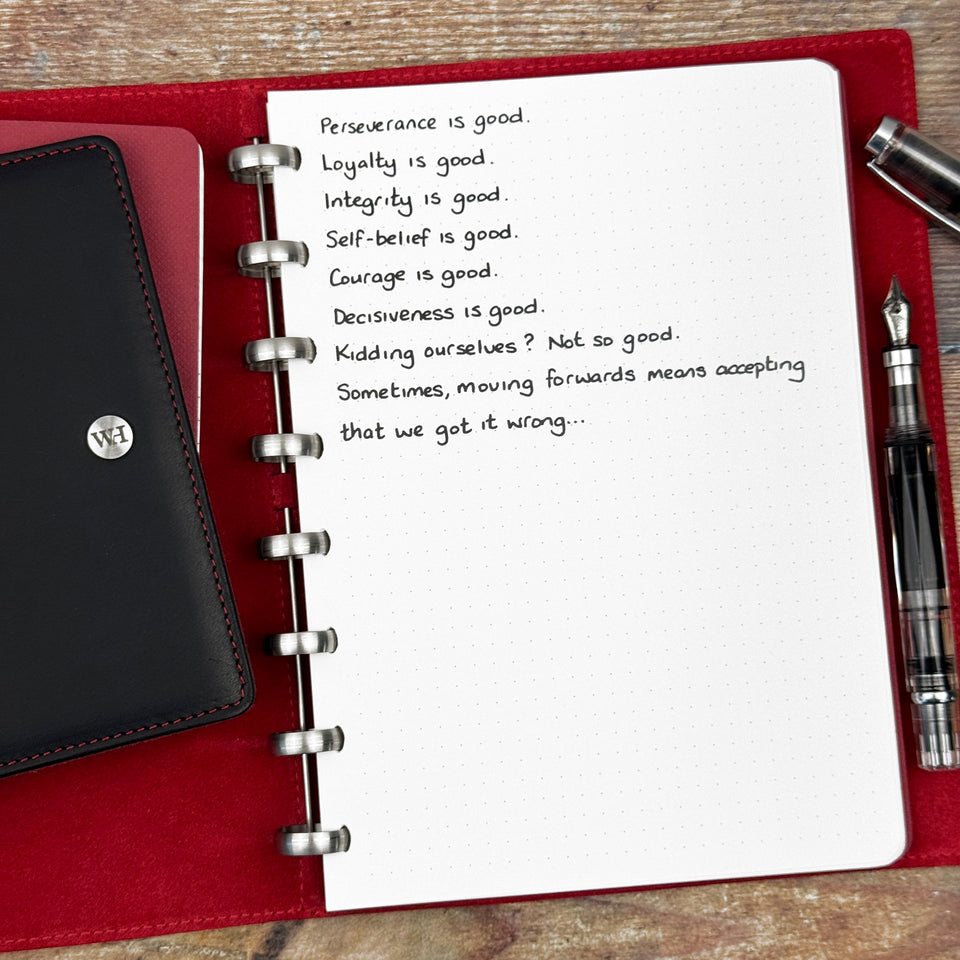 Perseverance is good.
Loyalty is good.
Integrity is good.
Self-belief is good.
Courage is good.
Decisiveness is good.
Kidding ourselves? Not so good.
Sometimes, moving forwards means accepting
that we got it wrong...
WH